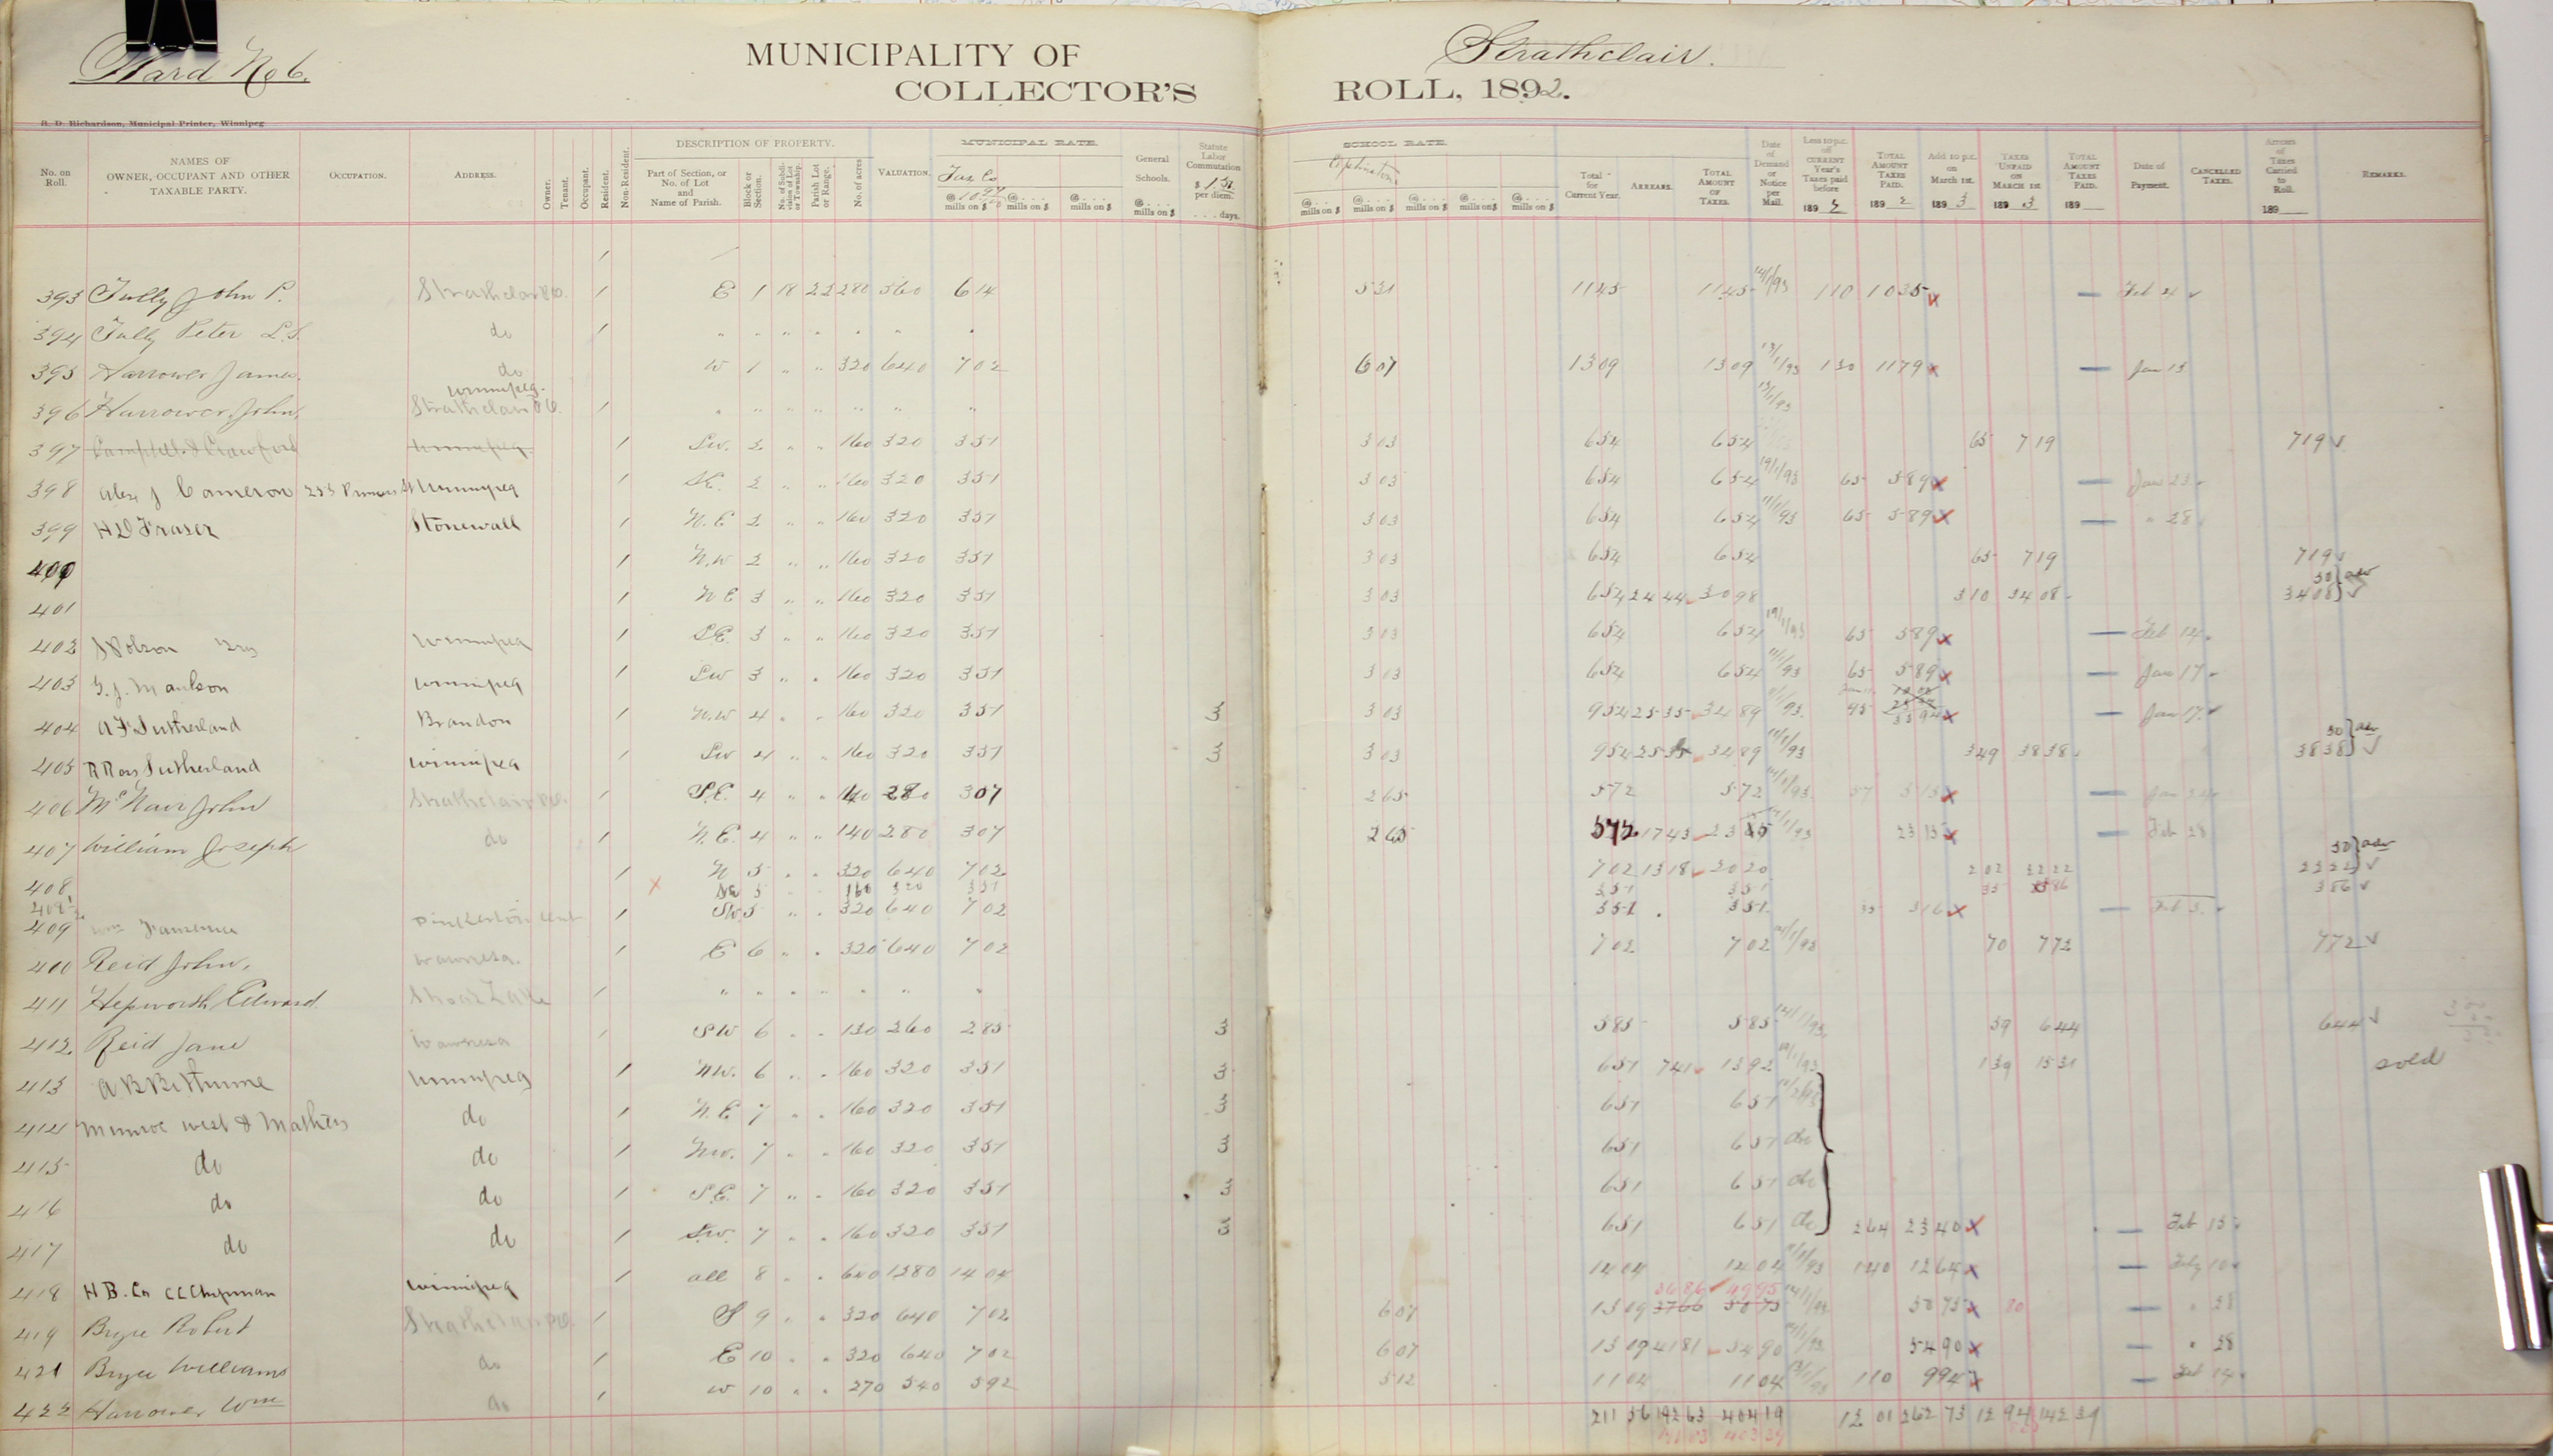 Ward No 6.
MUNICIPALITY OF Strathclair.
COLLECTOR'S ROLL, 1892.
R. D. Richardson, Municipal Printer, Winnipeg
No. on Roll. NAMES OF OWNER, OCCUPANT AND OTHER TAXABLE PARTY. OCCUPATION. ADDRESS. Owner. Tenant. Occupant. Resident. Non-Resident. DESCRIPTION OF PROPERTY. Part of Section, or No. of Lot and Name of Parish. Block or Section. No. of Subdivision of Lot or Township. Parish Lot or Range. No. of acres VALUATION. MUNICIPAL RATE. @ mills on $ @ mills on $ @ mills on $ General Schools. @ mills on $ Statute Labor Commutation $ 1.50 per diem. days.
SCHOOL RATE. @ mills on $ @ mills on $ @ mills on $ @ mills on $ @ mills on $ Total for Current Year. ARREARS. TOTAL AMOUNT OF TAXES. Date of Demand or Notice per Mail. Less 10 p.c. off CURRENT Year's Taxes paid before 189 TOTAL AMOUNT TAXES PAID. 189 2 Add 10 p.c. on March 1st. 189 3 TAXES UNPAID ON MARCH 1st 189 3 TOTAL AMOUNT TAXES PAID. 189 Date of Payment. CANCELLED TAXES. Arrears of Taxes Carried to Roll. 189 REMARKS.
393 Tully John P. Strathclair PO. E 1 18 22 280 560 614 531 1145 1145 14/1/93 110 1035 x Feb 4
394 Tully Peter L.S. do
395 Harrower James. do W 1 " " 320 640 702 607 1309 1309 13/1/93 130 1179 x Jan 13
Winnipeg.
396 Harrower John. Strathclair PO. 13/1/93
397 Campbell & Crawford Winnipeg SW. 2 " " 160 320 351 303 654 654 65 719 719
398 Alex J Cameron Winnipeg SE. 2 " " 160 320 351 303 654 654 65 589 x Jan 23
399 H D Fraser Stonewall N.E 2 " " 160 320 351 303 654 654 11/1/93 65 589 x " 28
400 N.W 2 " " 160 320 351 303 654 654 65 719 719
401 N E 3 " " 160 320 351 303 654 2444 3098 310 3408 30 3408
402 Winnipeg S.E. 3 " " 160 320 351 303 654 654 65 589 x Feb 14
403 G. J. Maulson Winnipeg SW 3 " " 160 320 351 303 654 654 11/1/93 65 589 x Jan 17
404 A F Sutherland Brandon N.W 4 " " 160 320 351 3 303 954 2535 3489 95 3394 x Jan 17
405 R Ross Sutherland Winnipeg SW 4 " " 160 320 351 3 303 954 2535 3489 11/1/93 349 3838 30 3838
406 McNair John Strathclair PO. S.E. 4 " " 140 280 307 265 572 572 57 515 x Jan 24
407 William Joseph do N.E. 4 " " 140 280 307 265 572 1743 2315 2315 x Feb 28
408 N 5 " " 320 640 702 702 1318 2020 202 2222 30 2222
408½ SE 5 160 320 351 351 351 35 386 386
409 SW 5 " " 320 640 702 351 351 35 316 x Feb 3
400 Reid John. Wawnesa. E 6 " " 320 640 702 702 702 70 772 772
411 Hepworth Edward. Shoal Lake
412 Reid Jane Wawnesa SW 6 " " 130 260 285 3 585 585 59 644 644
413 A B Bethune Winnipeg NW. 6 " " 160 320 351 3 651 741 1392 139 1531 sold
414 Munroe West & Mathers do N.E 7 " " 160 320 351 3 651 651
415 do do NW. 7 " " 160 320 351 3 651 651 do
416 do do S.E. 7 " " 160 320 351 3 651 651 do
417 do do S.W. 7 " " 160 320 351 3 651 651 do 264 2340 x Feb 15
418 H B. Co C C Chipman Winnipeg all 8 " " 640 1280 1404 1404 1404 140 1264 x Feby 10
3686 4995
419 Bryce Robert Strathclair PO. S 9 " " 320 640 702 607 1309 3766 5075 5075 x 80 " 28
421 Bryce Williams do E 10 " " 320 640 702 607 1309 4181 5490 5490 x " 28
422 Harrower Wm do W 10 " " 270 540 592 512 1104 1104 110 994 x Feb 14
211 56 192 63 404 19 12 01 262 73 12 94 142 39